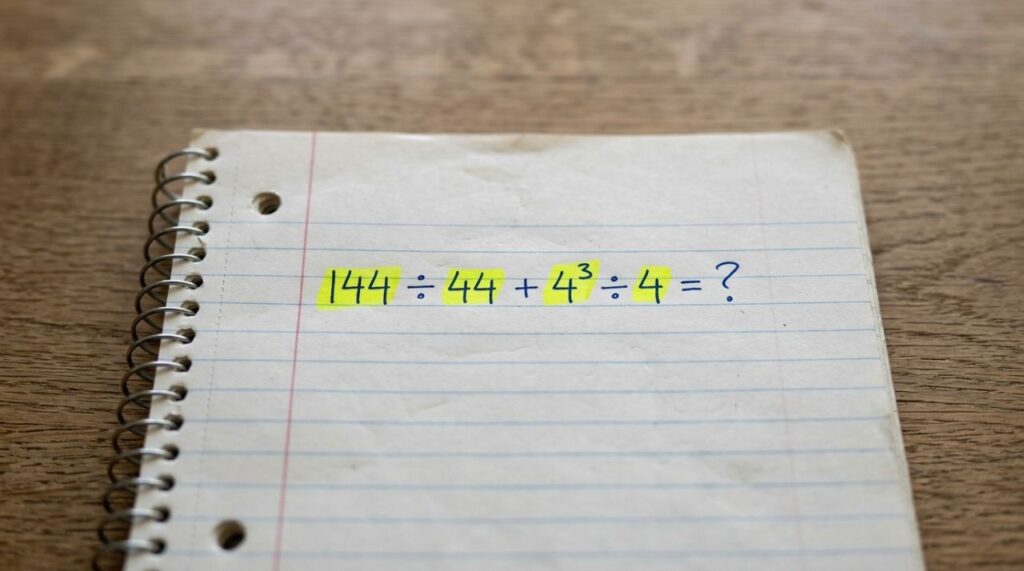 144 ÷ 44 + 4³ ÷ 4 = ?